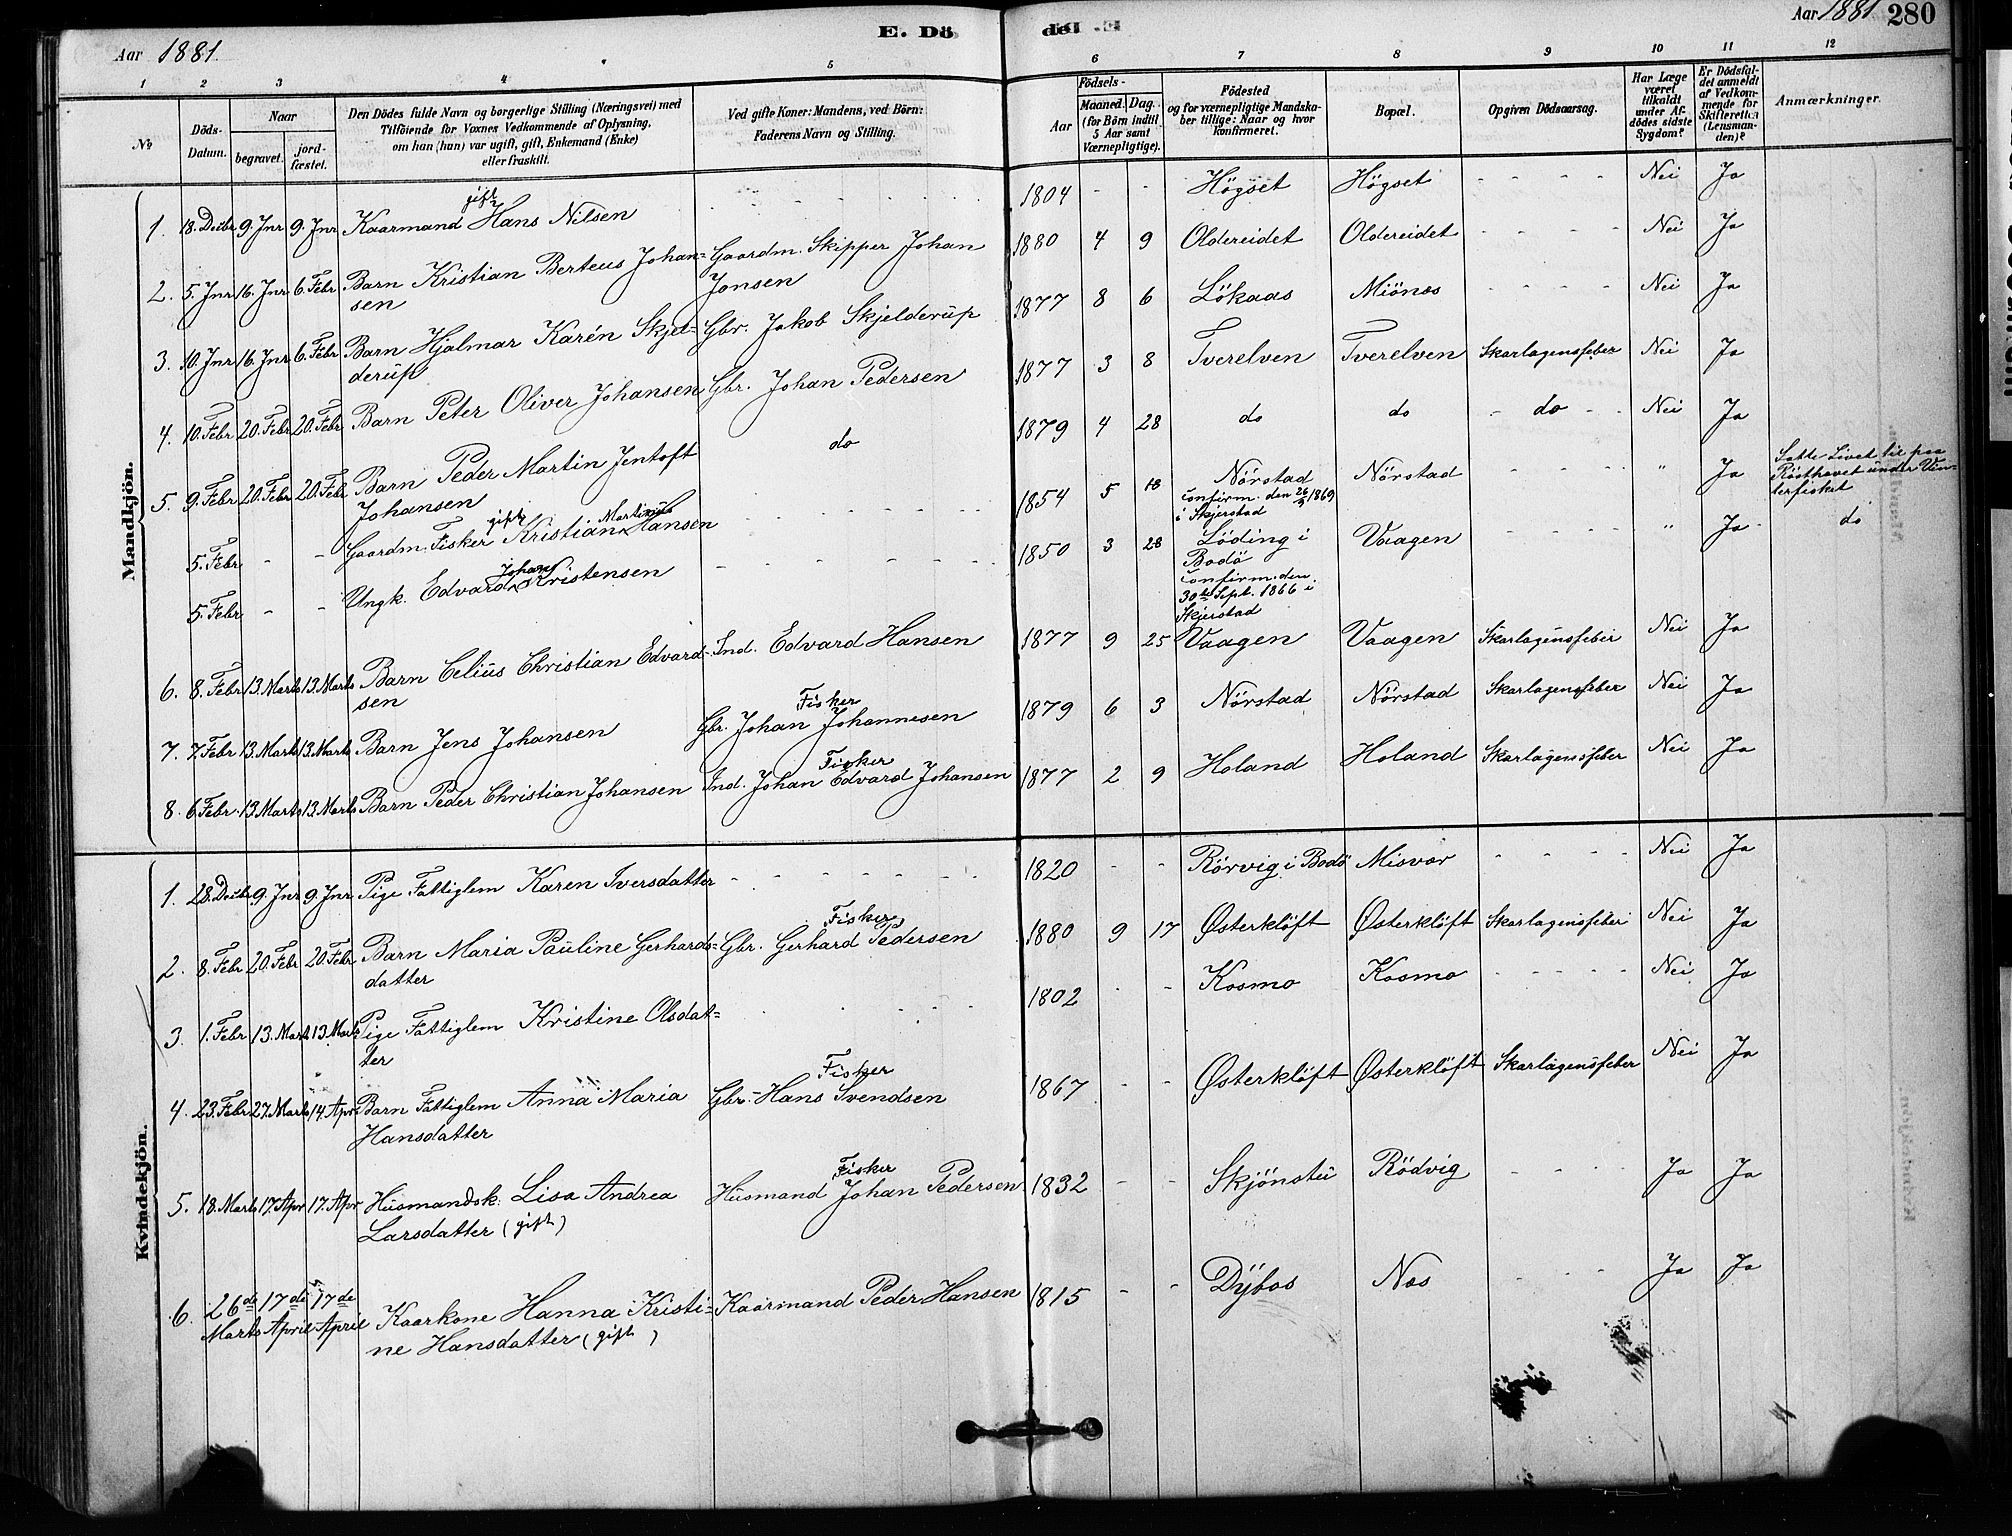 E. Dö
de.
Aar 1881.
Aar 1881
280
1
2
3
4
5
6
7
8
9
10
11
12
No
Döds-Datum.
Naar
begravet.
jord-fæstet.
Den Dödes fulde Navn og borgerlige Stilling (Næringsvei) med
Tilföiende for Voxnes Vedkommende af Oplysning,
om han (hun) var ugift, gift, Enkemand (Enke)
eller fraskilt.
Ved gifte Koner: Mandens, ved Börn:
Faderens Navn og Stilling.
Födsels-
Aar
Maaned. Dag.
(for Börn indtil
5 Aar samt
Værnepligtige).
Födested
og for værnepligtige Mandska-
ber tillige: Naar og hvor
konfirmeret.
Bopæl.
Opgiven Dödsaarsag.
Har Læge
været
tilkaldt
under Af-
dödes sidste
Sygdom?
Er Dödsfal-
det anmeldt
af Vedkom-
mende for
Skifteretten
(Lensman-
den)?
Anmærkninger.
Mandkjön.
1. 18. Decbr 9. Jnr 9. Jnr Kaarmand gift Hans Nilsen - - - - 1804 - - Högset Högset - - - - Nei Ja
2. 5. Jnr 16. Jnr 6. Febr Barn Kristian Berteus Johan= Gaardm. Skipper Johan 1880 4 9 Oldereidet Oldereidet - - - - Nei Ja
sen Jonsen
3. 10. Jnr 16. Jnr 6. Febr Barn Hjalmar Karén Skjel= Gbr. Jakob Skjelderup 1877 8 6 Lökaas Miönæs - - - - Nei Ja
derup
4. 10. Febr 20. Febr 20. Febr Barn Peter Oliver Johansen Gbr. Johan Pedersen 1877 3 8 Tverelven Tverelven Skarlagensfeber Nei Ja
5. 9. Febr 20. Febr 20. Febr Barn Peder Martin Jentoft do 1879 4 28 do do - do - Nei Ja
Johansen
5. Febr - - Gaardm. Fisker gift Kristian Martinus Hansen - - - - 1854 5 18 Nörstad Nörstad - - - - " Ja Satte Livet til paa
confirm. den 26/9 1869 Rösthavet under Vin-
i Skjerstad terfisket
5. Febr - - Ungk. Edvard Johan Kristensen - - - - 1850 3 28 Löding i Vaagen - - - - " Ja do
Bodö
confirm. den
30te Sept. 1866 i
Skjerstad
6. 8. Febr 13. Marts 13. Marts Barn Celius Christian Edvard- Ind. Edvard Hansen 1877 9 25 Vaagen Vaagen Skarlagensfeber Nei Ja
sen
7. 7. Febr 13. Marts 13. Marts Barn Jens Johansen Gbr. Fisker Johan Johannesen 1879 6 3 Nörstad Nörstad Skarlagensfeber Nei Ja
8. 6. Febr. 13. Marts 13. Marts Barn Peder Christian Johansen Ind. Fisker Johan Edvard Johansen 1877 2 9 Holand Holand Skarlagensfeber Nei Ja
Kvindekjön.
1. 28. Decbr 9. Jnr 9. Jnr Pige Fattiglem Karen Iversdatter - - - - 1820 - - Rörvig i Bodö Misvær - - - - Nei Ja
2. 8. Febr 20. Febr 20. Febr Barn Maria Pauline Gerhards= Gbr. Fisker Gerhard Pedersen 1880 9 17 Østerklöft Østerklöft Skarlagensfeber Nei Ja
datter
3. 1. Febr 13. Mart 13. Mart Pige Fattiglem Kristine Olsdat= - - - 1802 - - Kosmo Kosmo - - - - Nei Ja
ter
4. 23. Febr 27. Marts 14. Apr. Barn Fattiglem Anna Maria Gbr. Fisker Hans Svendsen 1867 - - Østerklöft Østerklöft Skarlagensfeber Nei Ja
Hansdatter
5. 18. Marts 17. Apr 17. Apr Husmandsk. Lisa Andrea Husmand Fisker Johan Pedersen 1832 - - Skjönstu Rödvig - - - Ja Ja
Larsdatter (gift)
6. 26de 17de 17de Kaarkone Hanna Kristi= Kaarmand Peder Hansen 1815 - - Dybos Næs - - - Ja Ja
Marts April April ne Hansdatter (gift)